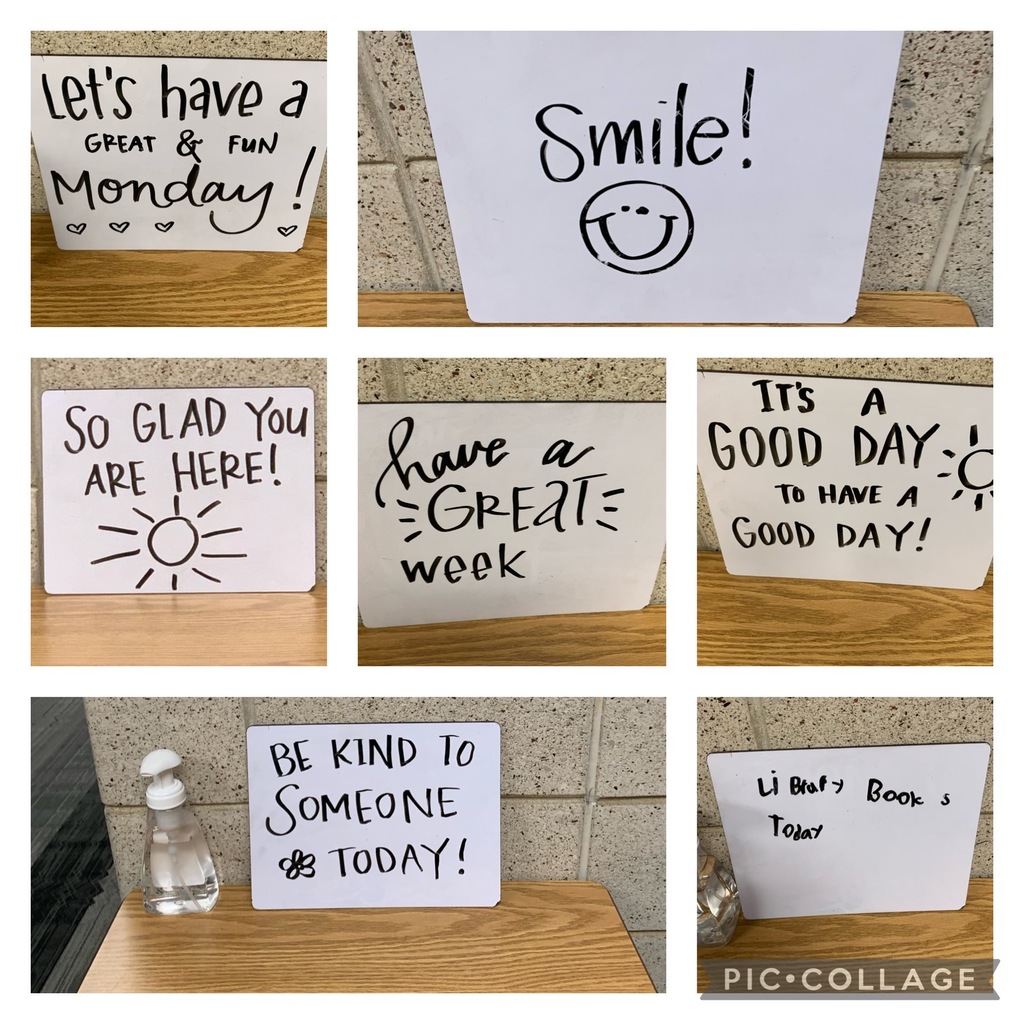 Let's have a
GREAT & FUN
Monday!
Smile!
SO GLAD YOU
ARE HERE!
have a
GREAT
week
IT'S A
GOOD DAY
TO HAVE A
GOOD DAY!
BE KIND TO
SOMEONE
TODAY!
Li Brary Book s
Today
PIC•COLLAGE